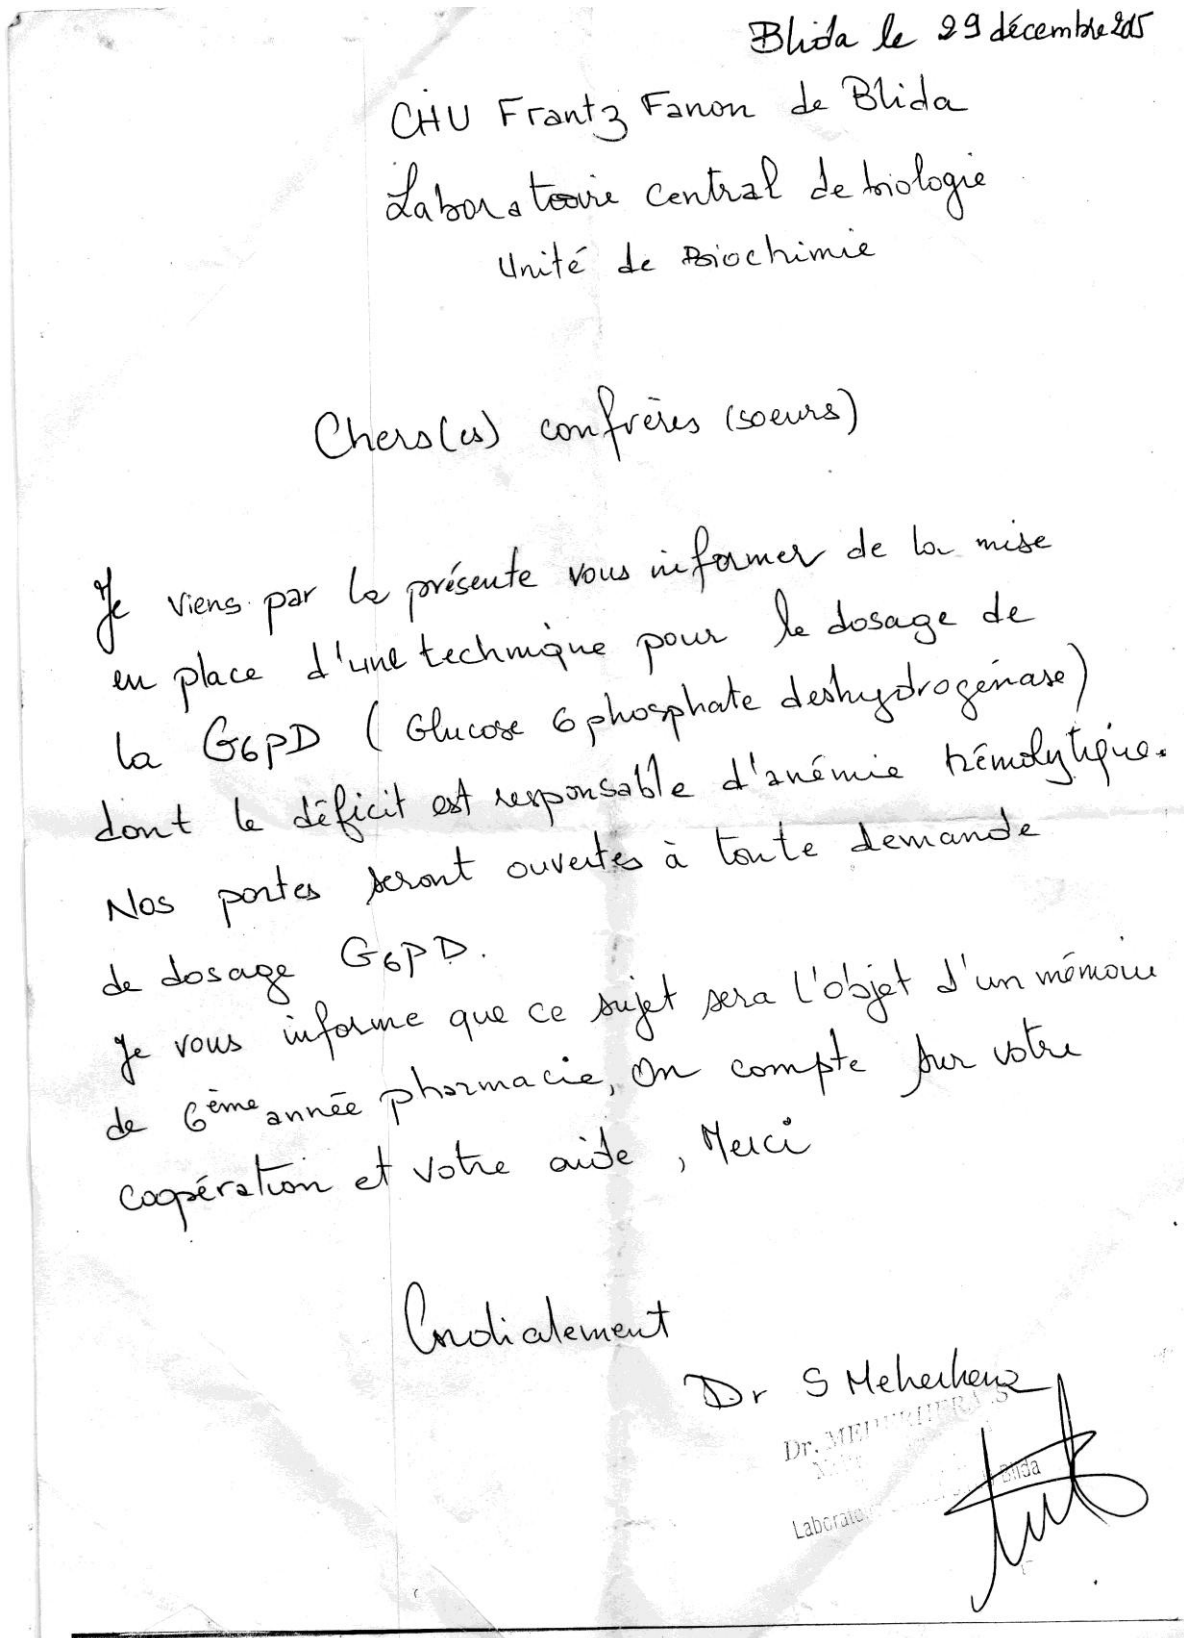 Blida le 29 décembre 2015
CHU Frantz Fanon de Blida
Laboratoire central de biologie
Unité de Biochimie
Chers(es) confrères (soeurs)
Je viens par la présente vous informer de la mise
en place d'une technique pour le dosage de
la G6PD ( Glucose 6 phosphate deshydrogénase)
dont le déficit est responsable d'anémie hémolytique.
Nos portes seront ouvertes à toute demande
de dosage G6PD.
Je vous informe que ce sujet sera l'objet d'un mémoire
de 6ème année pharmacie, On compte sur votre
coopération et votre aide, Merci
Cordialement
Dr S
Dr.
Blida